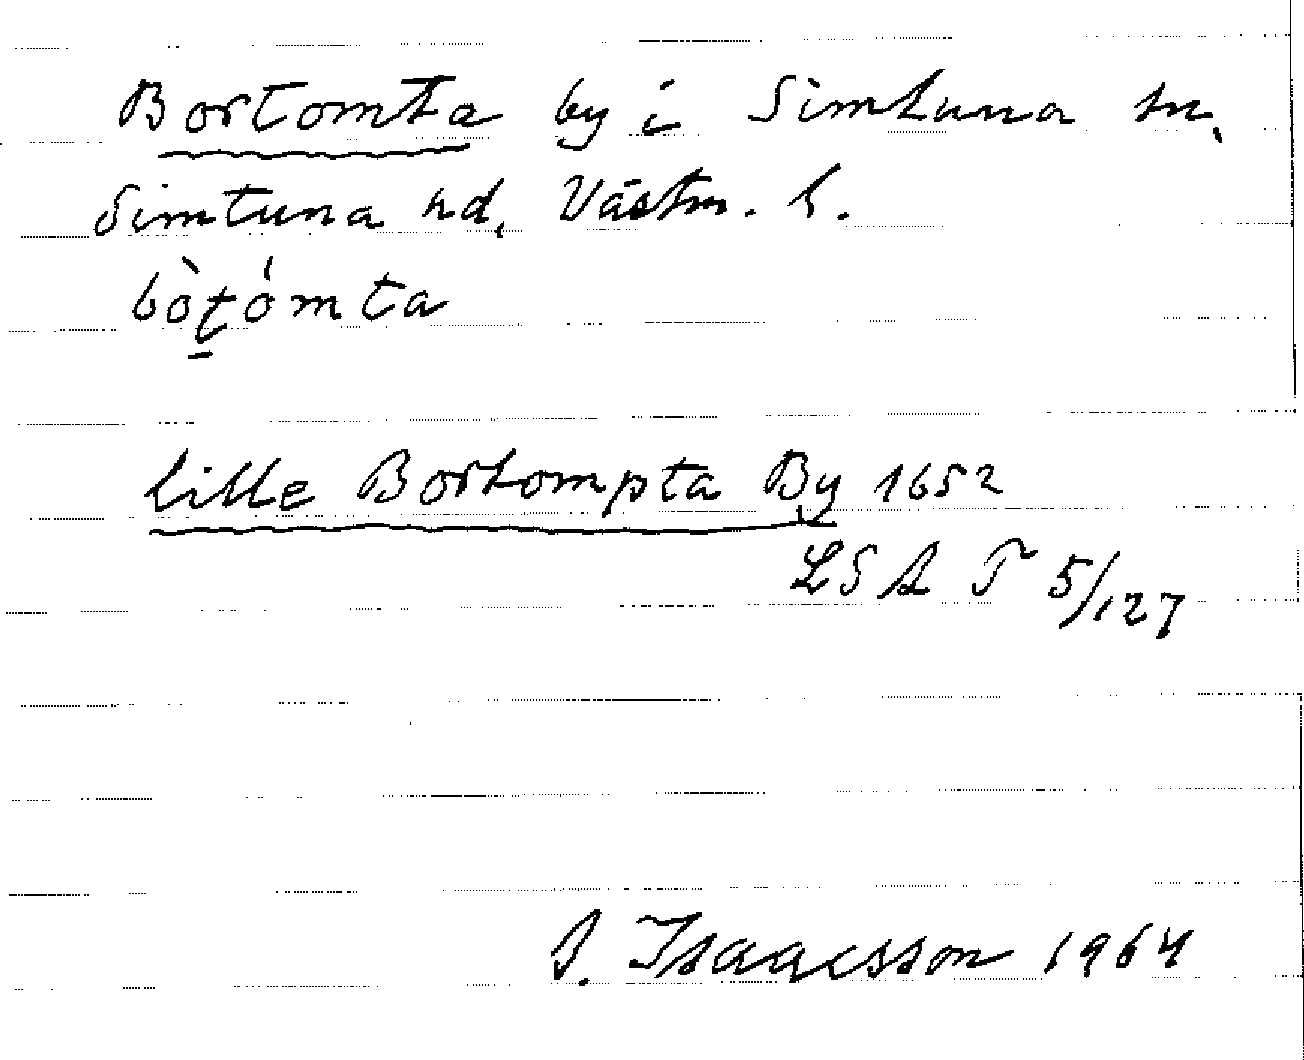 Bortomta by i Simtuna sn,
Simtuna hd, Västm. l.
bòṭómta
lille Bortompta By 1652
LSA T 5/127
I. Isaacsson 1964